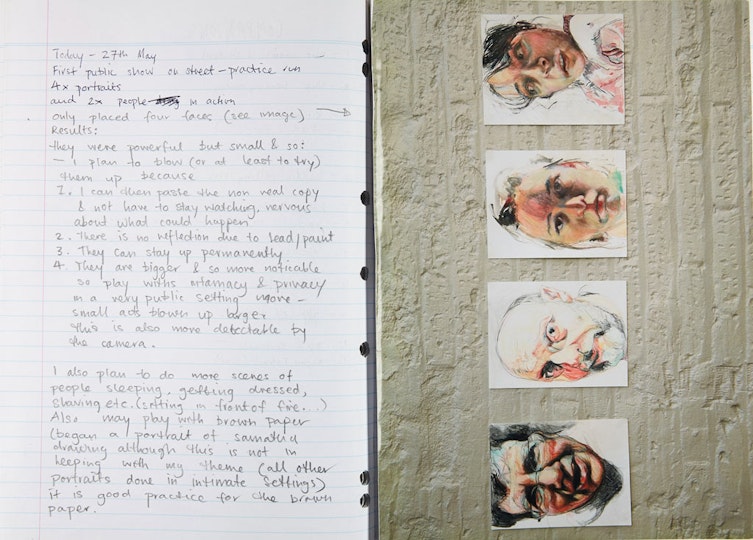 Today - 27th May
First public show on street - practice run
4x portraits
and 2x people in action
only placed four faces (see image)
Results:
they were powerful but small & so:
- I plan to blow (or at least to try)
them up because
1. I can then paste the non real copy
& not have to stay watching, nervous
about what could happen
2. There is no reflection due to lead/paint
3. They can stay up permanently
4. They are bigger & so more noticable
so play with intamacy & privacy
in a very public setting more -
small ads blown up larger
this is also more detectable by
the camera.
I also plan to do more scenes of
people sleeping, getting dressed,
shaving etc. (sitting in front of fire...)
Also may play with brown paper
(began a portrait of samatha
drawing although this is not in
keeping with my theme (all other
portraits done in intimate settings)
it is good practice for the brown
paper.